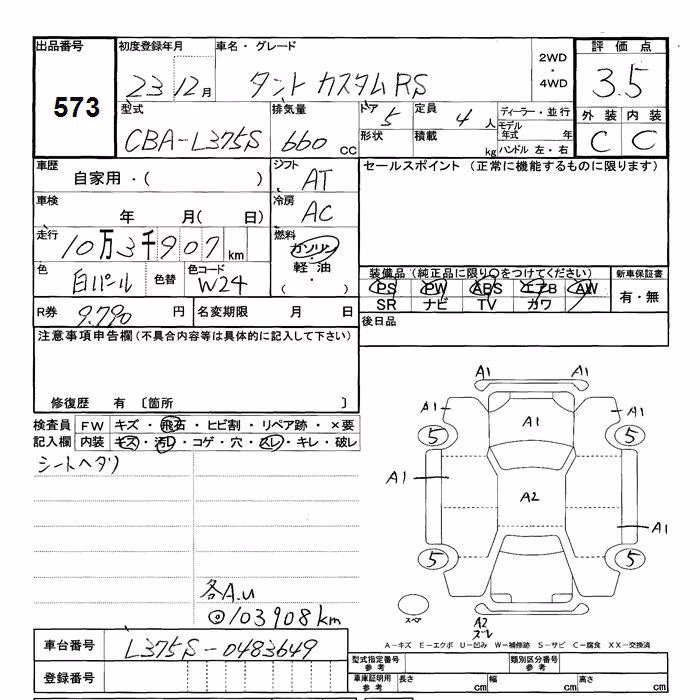 出品番号 初度登録年月 車名・グレード 評価点
573 23 12月 タント カスタムRS 2WD・4WD 3.5
型式 排気量 ドア 定員 ディーラー・並行 外装 内装
CBA-L375S 660cc 5 4人 モデル年式 年 C C
形状 積載 kg ハンドル 左・右
車歴 シフト セールスポイント (正常に機能するものに限ります)
自家用・( ) AT
車検 冷房
年 月( 日) AC
走行 燃料
10万3千907km ガソリン・軽油・( )
色 色替 色コード 装備品 (純正品に限り○をつけてください) 新車保証書
白パール W24 PS PW ABS エアB AW 有・無
SR ナビ TV カワ
R券 9.790円 名変期限 月 日 後日品
注意事項申告欄(不具合内容等は具体的に記入して下さい)
修復歴 有 〔箇所 〕
検査員 FW キズ・飛石・ヒビ割・リペア跡・×要
記入欄 内装 キズ・汚レ・コゲ・穴・スレ・キレ・破レ
シートヘタリ
A1 A1
A1 A1 A1
5 5
A1 A2 A1
5 5
各A.u
◎103908km
スペア A2
スレ
A-キズ E-エクボ U-凹み W-補修跡 S-サビ C-腐食 XX-交換済
車台番号 L375S-0483649
型式指定番号 参考 類別区分番号 参考
登録番号 車庫証明用 参考 長さ cm 幅 cm 高さ cm